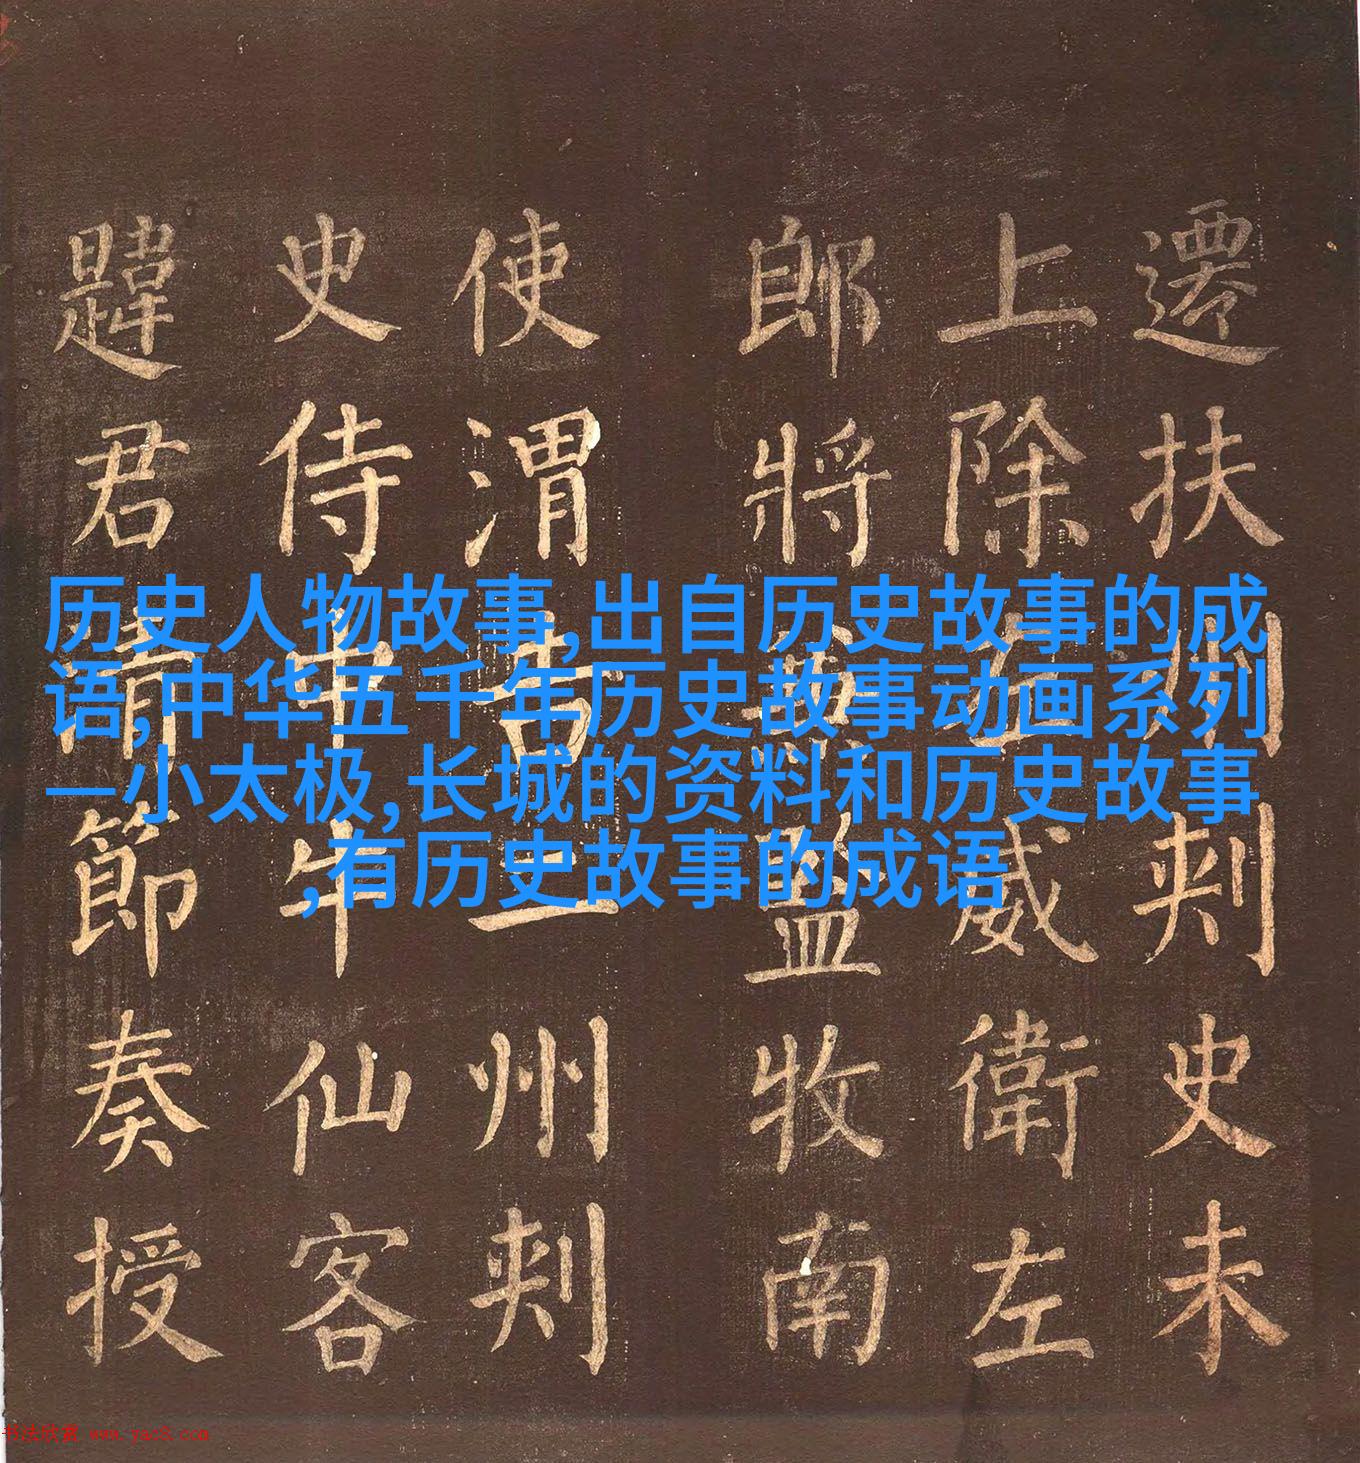 历史人物故事,出自历史故事的成
语,中华五千年历史故事动画系列
—小太极,长城的资料和历史故事
,有历史故事的成语
遷扶州刾史未
上除左威衛左
郎將監牧南
使渭二州刾
史侍中牛仙客
韙君清節奏授
书法欣赏 www.yac8.com